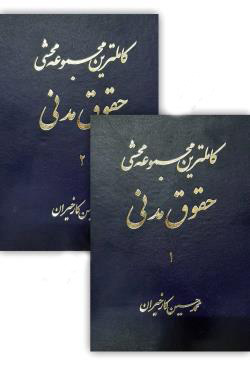 کاملترین مجموعه محشی
حقوق مدنی
۲
حسین کارخیران
کاملترین مجموعه محشی
حقوق مدنی
۱
محمد حسین کارخیران